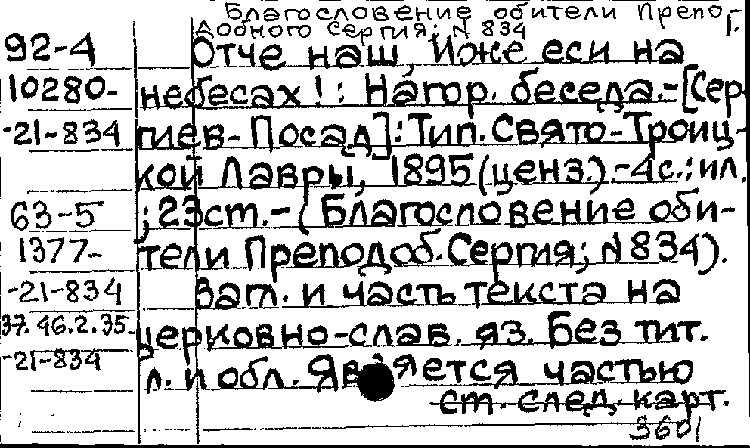 Благословение обители Препо
добного Сергия; N 834 Г.
92-4 Отче наш, Иже еси на
10280- небесах!: Нагор. беседа.-[Сер-
-21-834 гиев-Посад]:Тип.Свято-Троиц-
кой Лавры, 1895(ценз.).-4с.:ил.
63-5 ; 23ст.-(Благословение оби-
1377- тели Преподоб.Сергия; N834).
-21-834 Загл. и часть текста на
37.46.2.35- церковно-слав. яз. Без тит.
-21-834 л. и обл. Является частью
ст. след. карт.
3601